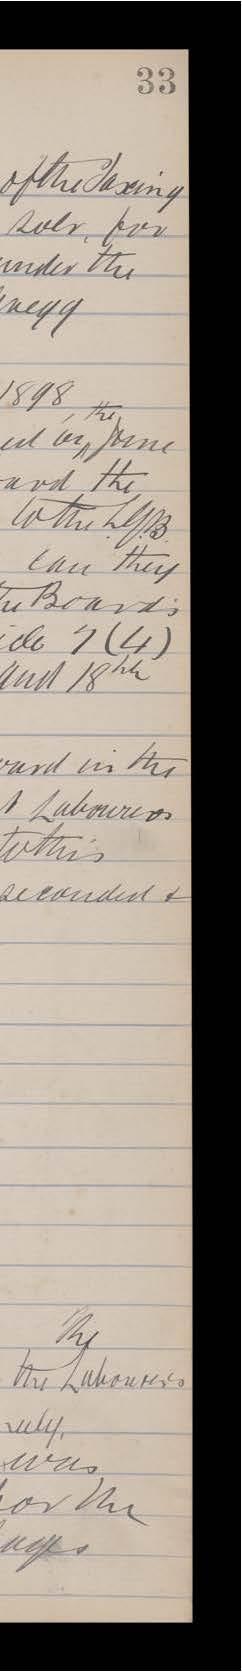 33
of the Taxing
solr. for
under the
1898
the
ed in June
ard the
to the L.G.B.
can they
the Board's
icle 7 (4)
and 18th
ward in the
t Labourers
to this
seconded &
The
the Labourers
was
for the